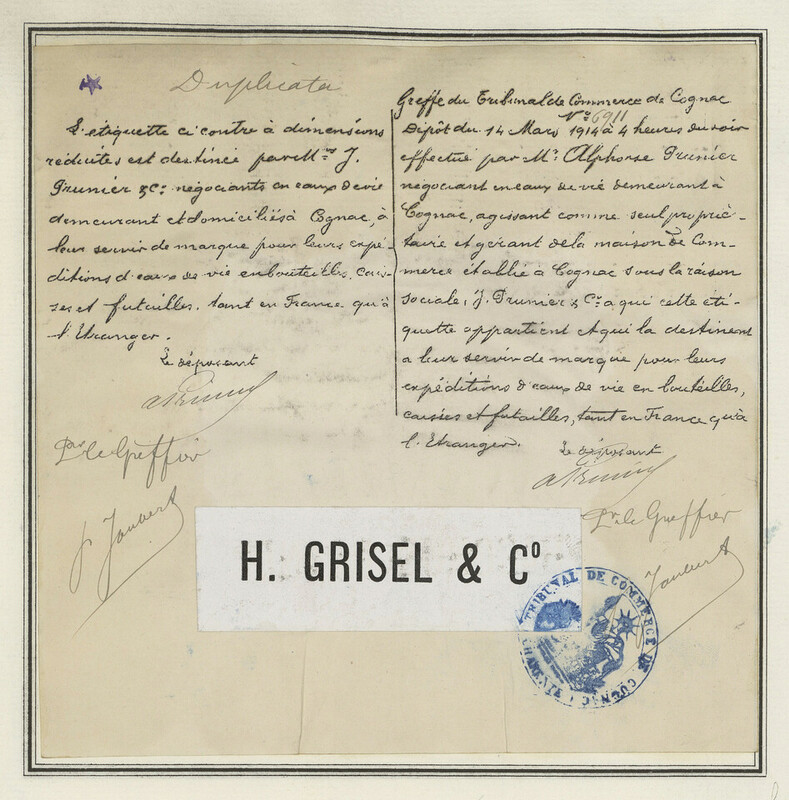 Duplicata
L'étiquette ci contre à dimensions
réduites est destinée par Mrs J.
Prunier & Cie négociants en eaux de vie
demeurant et domiciliés à Cognac, à
leur servir de marque pour leurs expé-
ditions d'eaux de vie en bouteilles, cais-
ses et futailles, tant en France qu'à
l'Etranger.
Le déposant
APrunier
Pr le Greffier
P. Joubert
Greffe du Tribunal de Commerce de Cognac
No 6911
Dépôt du 14 Mars 1914 à 4 heures du soir
effectué par Mr. Alphonse Prunier
négociant en eaux de vie demeurant à
Cognac, agissant comme seul proprié-
taire et gérant de la maison de Com-
merce établie à Cognac sous la raison
sociale, J. Prunier & Cie a qui cette éti-
quette appartient et qui la destinent
a leur servir de marque pour leurs
expéditions d'eaux de vie en bouteilles,
caisses et futailles, tant en France qu'à
l'Etranger.
Le déposant
APrunier
Pr le Greffier
Joubert
H. GRISEL & Co
TRIBUNAL DE COMMERCE DE COGNAC
CHARENTE